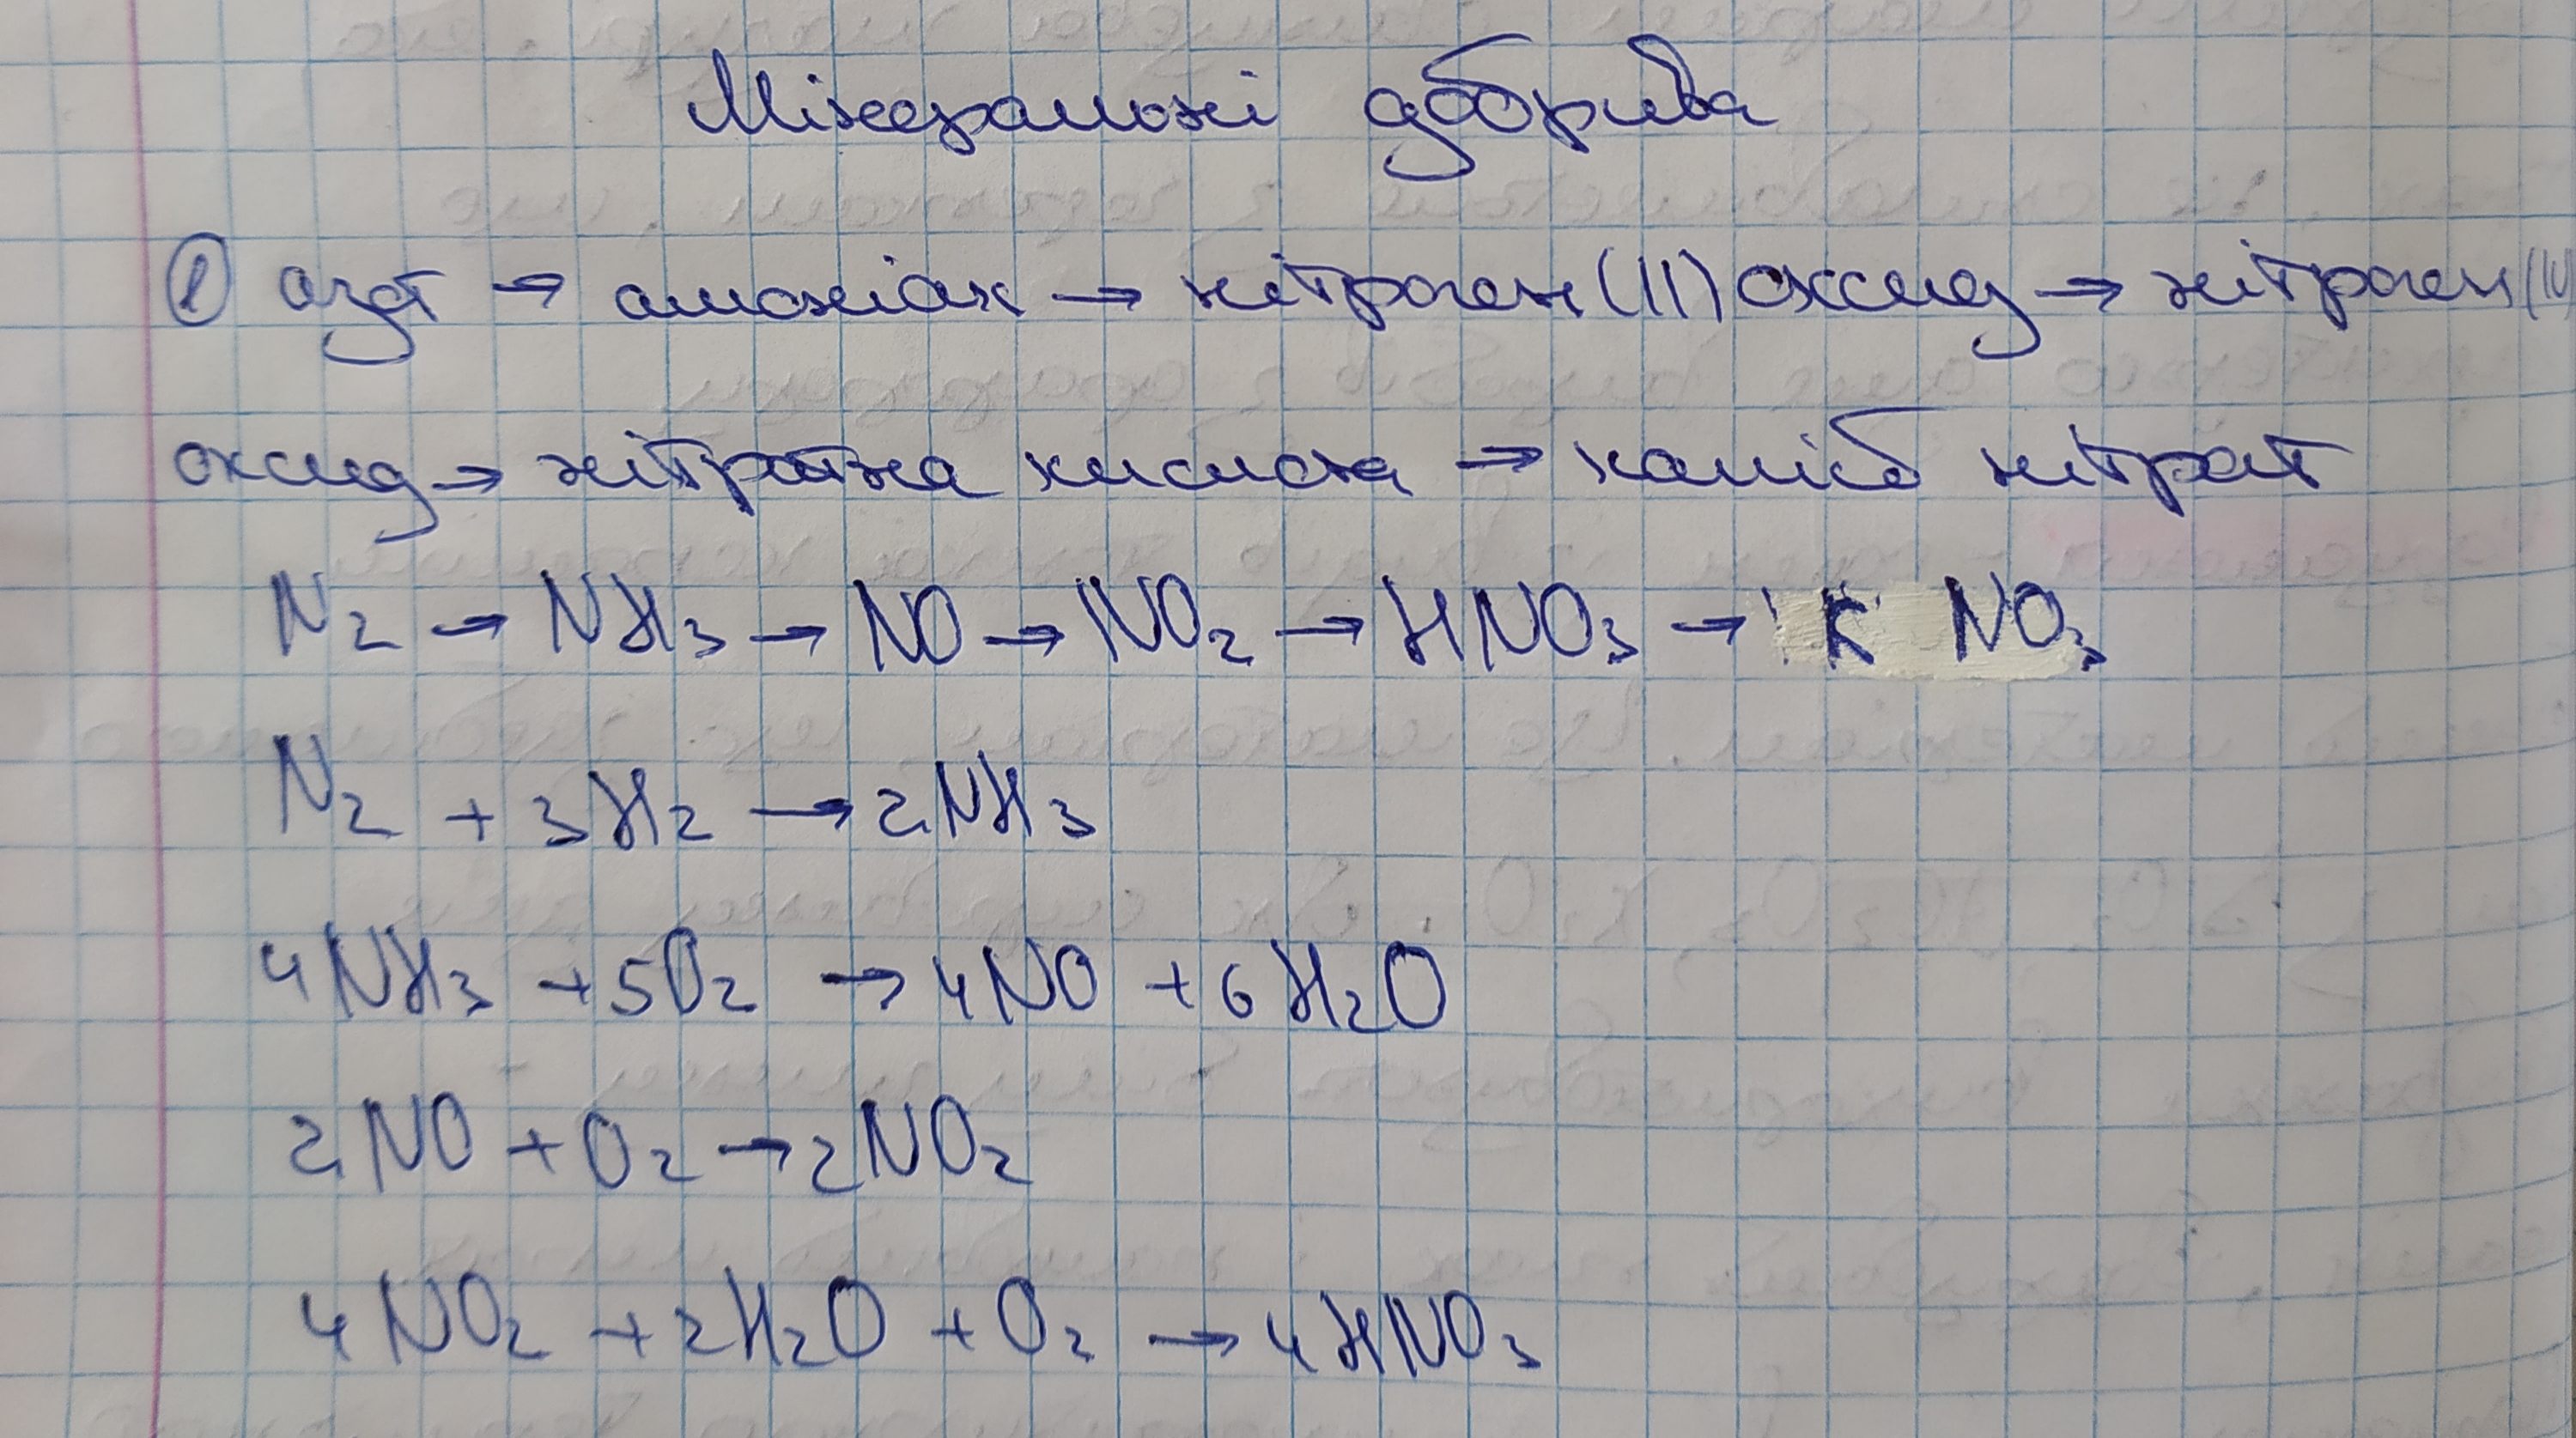 Мінеральні добрива
① азот → амоніак → нітроген (II) оксид → нітроген (IV)
оксид → нітратна кислота → калій нітрат
N₂ → NH₃ → NO → NO₂ → HNO₃ → K NO₃
N₂ + 3H₂ → 2NH₃
4NH₃ + 5O₂ → 4NO + 6H₂O
2NO + O₂ → 2NO₂
4NO₂ + 2H₂O + O₂ → 4HNO₃